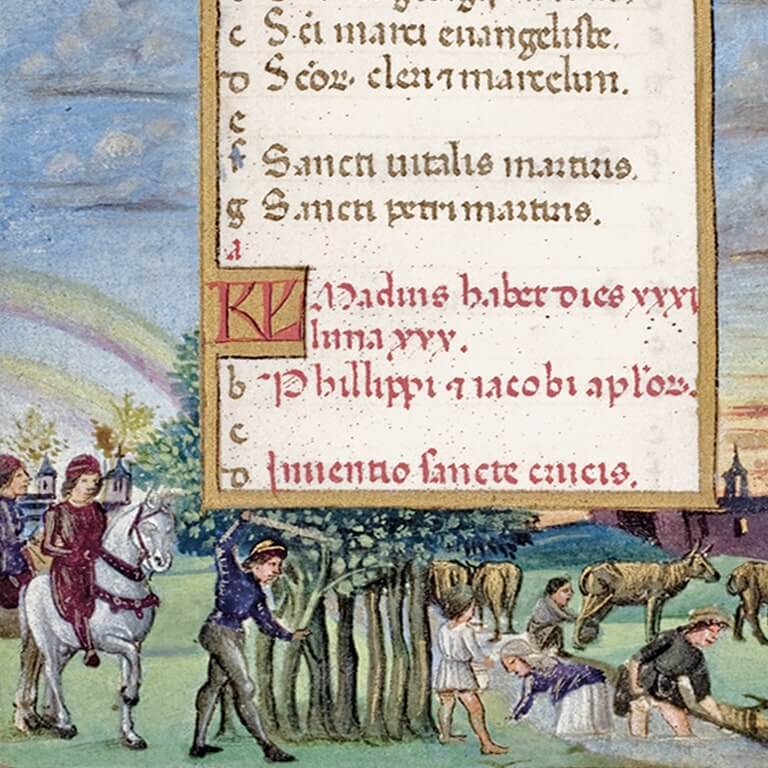 c S. ci marci euangeliste.
d S cor. cleti ⁊ marcelini.
e
f Sancti uitalis martiris.
g Sancti petri martiris.
a
KL Madius habet dies xxxi
luna xxx.
b Phillippi ⁊ iacobi aplor.
c
d Inuentio sancte crucis.